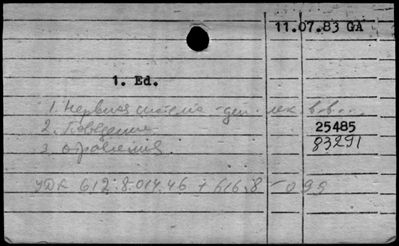 11.07.83 GA
1. Ed.
1. Нервная система - лек. в-в.
2. Поведение 25485
3. Отравления 83291
УДК 612.8.014.46 + 616.8-099